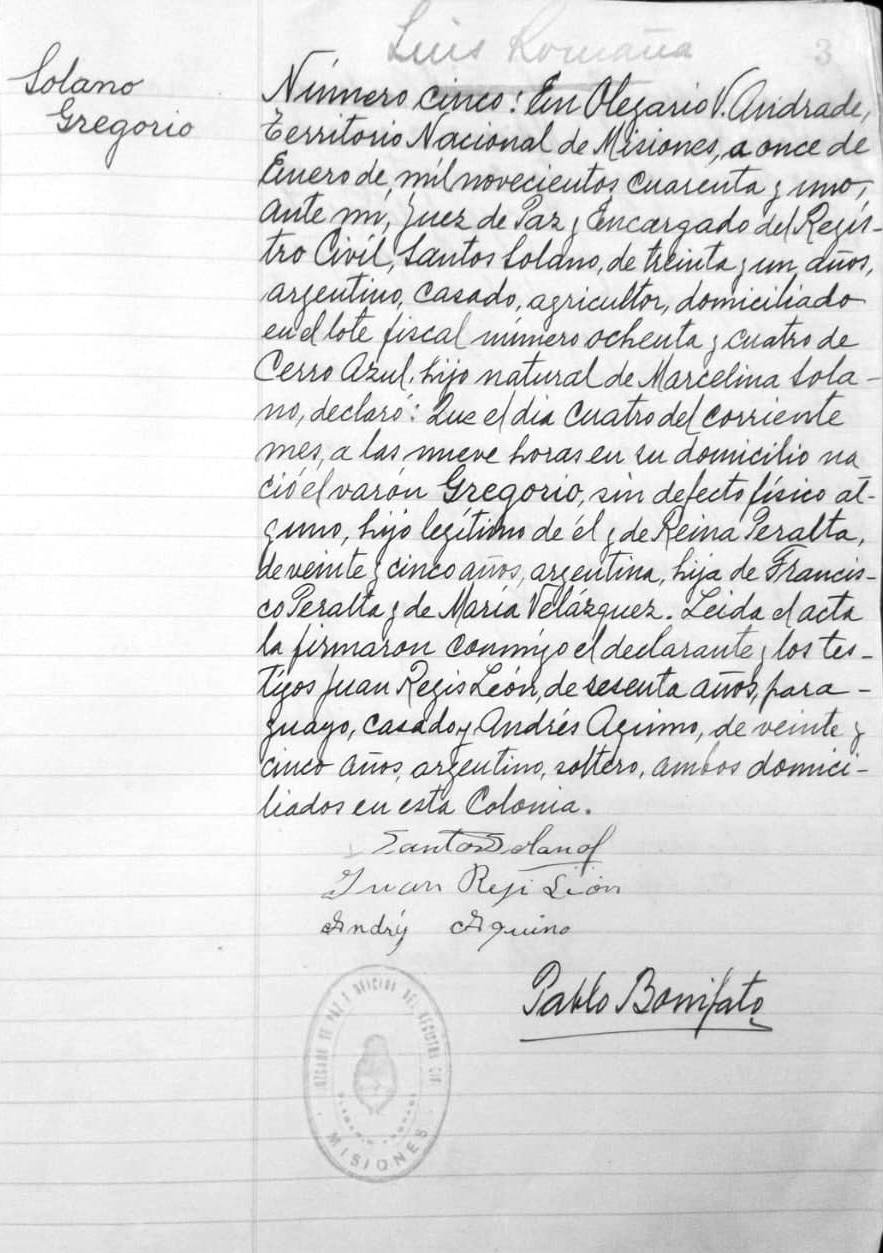 Luis Romaña
3
Solano
Gregorio
Número cinco: En Olegario V. Andrade,
Territorio Nacional de Misiones, a once de
Enero de mil novecientos cuarenta y uno,
ante mí, Juez de Paz y Encargado del Regis-
tro Civil, Santos Solano, de treinta y un años,
argentino, casado, agricultor, domiciliado
en el lote fiscal número ochenta y cuatro de
Cerro Azul, hijo natural de Marcelina Sola-
no, declaró: Que el día cuatro del corriente
mes, a las nueve horas en su domicilio na
ció el varón Gregorio, sin defecto físico al-
guno, hijo legítimo de él y de Reina Peralta,
de veinte y cinco años, argentina, hija de Francis-
co Peralta y de María Velázquez. Leida el acta
la firmaron conmigo el declarante y los tes-
tigos Juan Regis León, de sesenta años, para-
guayo, casado y Andrés Aquino, de veinte y
cinco años, argentino, soltero, ambos domici-
liados en esta Colonia.
Santos Solano
Juan Regi León
Andrés Aquino
Pablo Bonifato
JUZGADO DE PAZ Y OFICINA DEL REGISTRO CIVIL
MISIONES